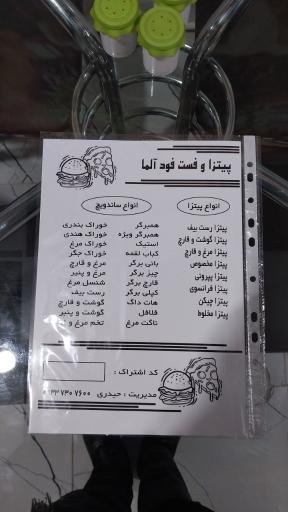 پیتزا و فست فود آلما
انواع پیتزا
پیتزا رست بیف
پیتزا گوشت و قارچ
پیتزا مرغ و قارچ
پیتزا مخصوص
پیتزا پپرونی
پیتزا فرانسوی
پیتزا چیکن
پیتزا مخلوط
انواع ساندویچ
همبرگر
همبرگر ویژه
استیک
کباب لقمه
بانی برگر
چیز برگر
قارچ برگر
کپلی برگر
هات داگ
فلافل
ناگت مرغ
خوراک بندری
خوراک هندی
خوراک مرغ
خوراک جگر
مرغ و قارچ
مرغ و پنیر
شنسل مرغ
رست بیف
گوشت و قارچ
گوشت و پنیر
تخم مرغ و
کد اشتراک :
مدیریت : حیدری ۷۳۰ ۷۶۰۰